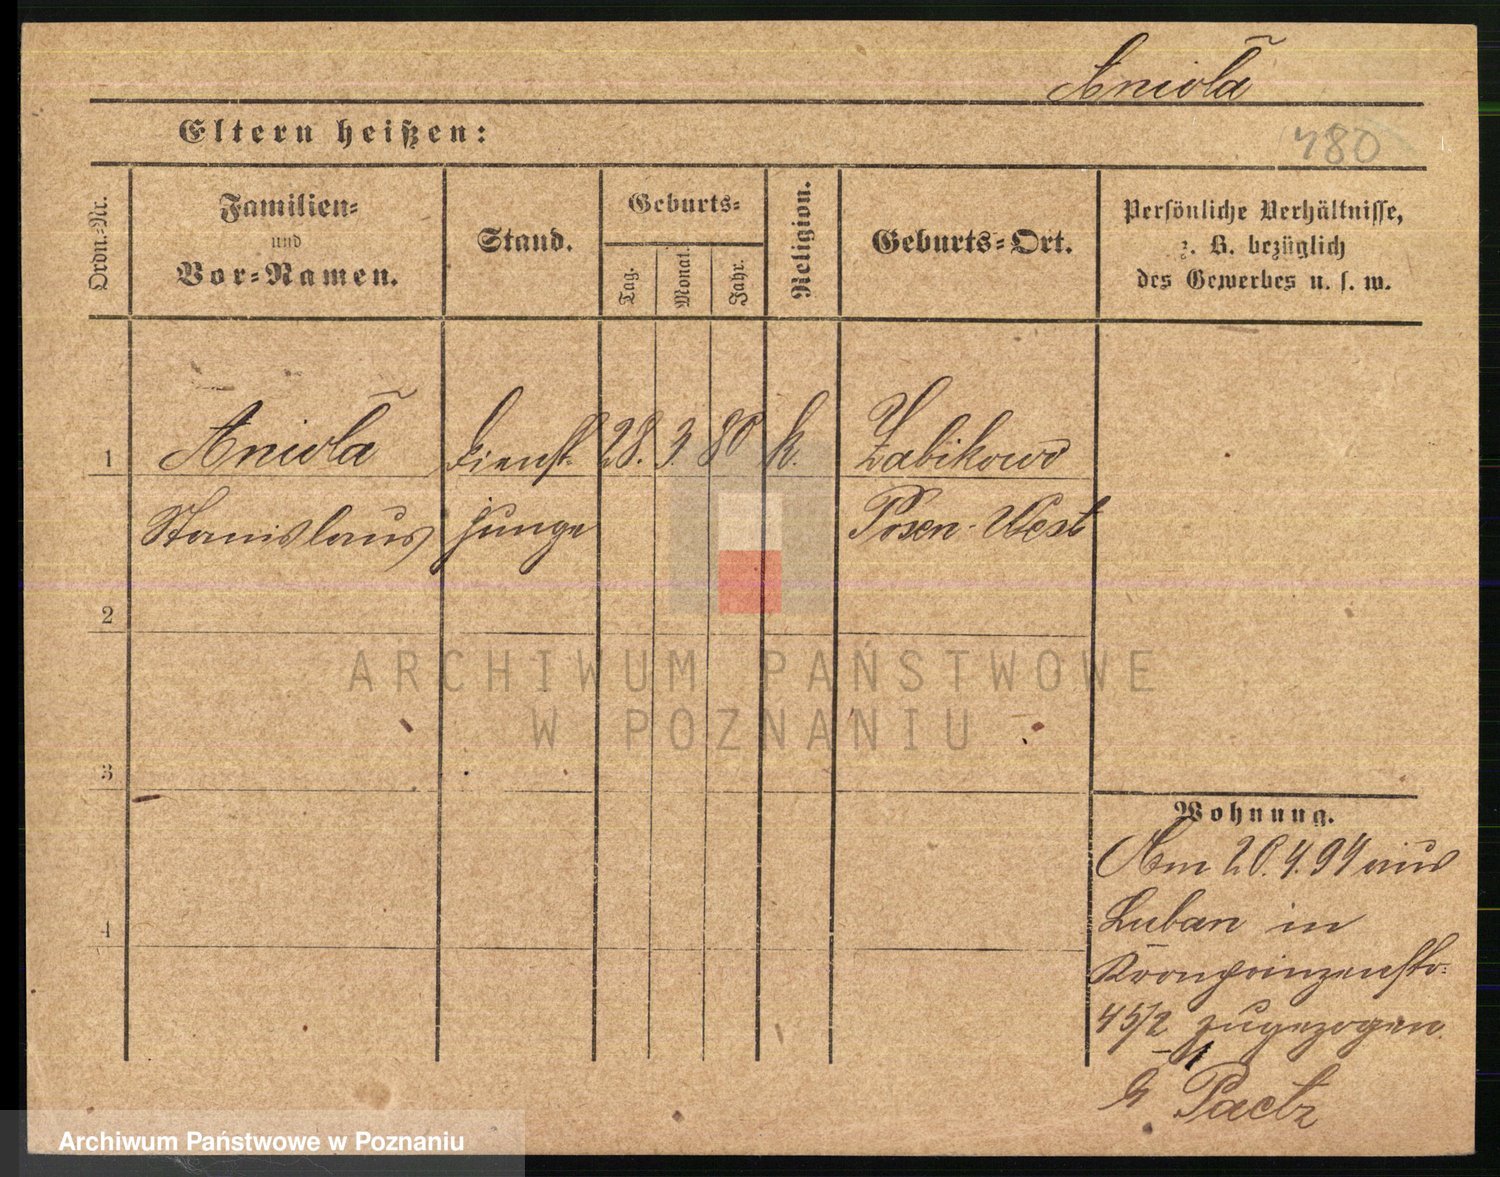 Aniołã
Eltern heißen:
480
Ordn.-Nr.
Familien-
und
Vor-Namen.
Stand.
Geburts-
Tag.
Monat.
Jahr.
Religion.
Geburts-Ort.
Persönliche Verhältnisse,
z. B. bezüglich
des Gewerbes u. s. w.
1
Aniołã
Dienst
28.
3.
80
k.
Zabikowo
Stanislaus
junge
Posen-West
2
ARCHIWUM PAŃSTWOWE
W POZNANIU
3
Wohnung.
Am 20.4.94 aus
Luban in
4
Kronprinzenstr.
45/2 zugezogen
b Paetz
Archiwum Państwowe w Poznaniu